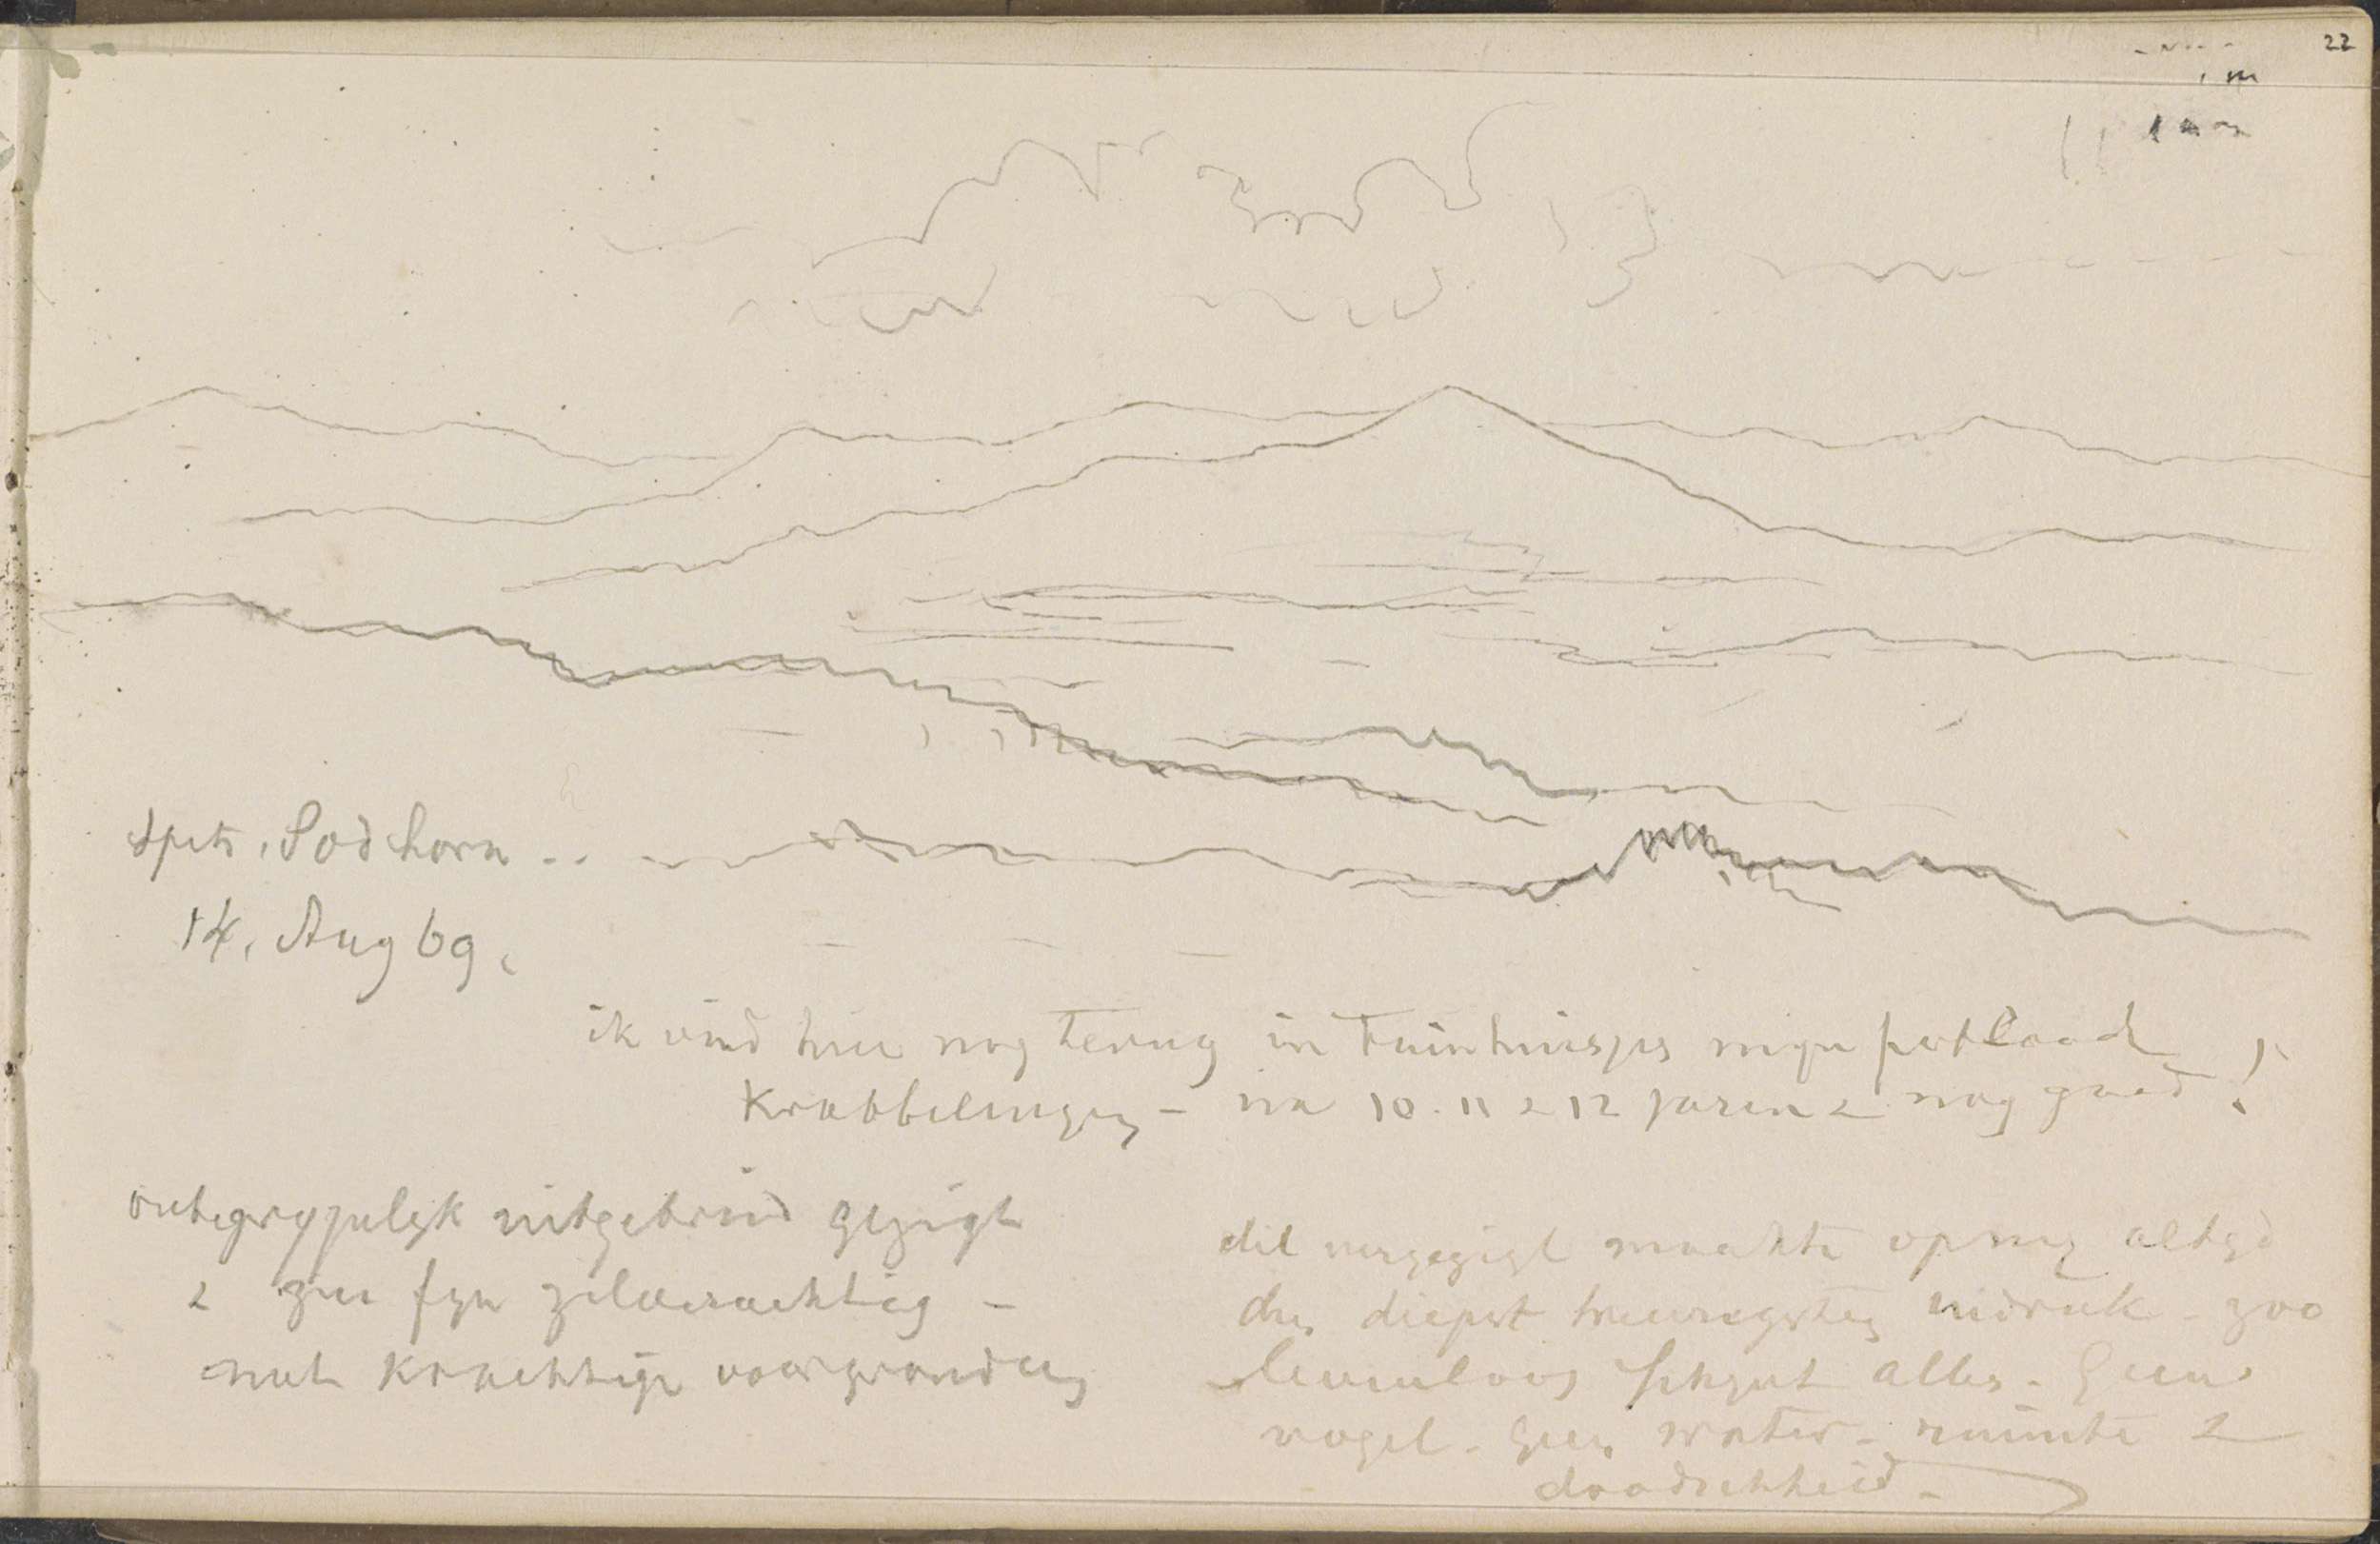 22
Spits. Sodhorn
14. Aug 69.
ik vind hier nog terug in tuinhuisjes mijn potlood
krabbelingen – na 10. 11 & 12 jaren & nog goed !
onbegrypelyk uitgebreid gezigt
& zeer fyn zilverachtig –
met krachtige voorgronden
dit vergezigt maakte op my altyd
den diepst treurigsten indruk – zoo
levenloos schynt alles. Geen
vogel. Geen water. ruimte &
doodschheid –